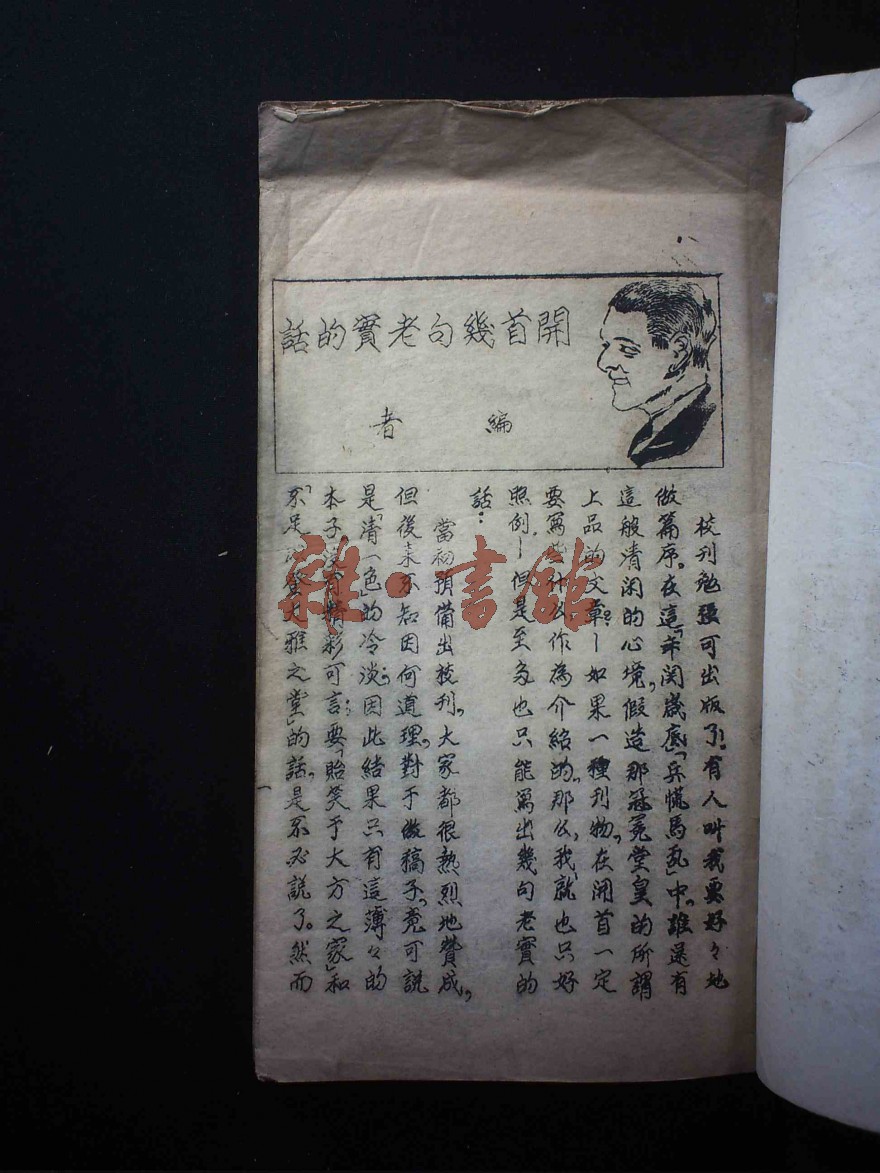 開首幾句老實的話
編者
校刊勉强可出版了！有人叫我要好々地
做篇序。在這「年関歲底」「兵慌馬乱」中。誰還有
這般清闲的心境，假造那冠冕堂皇的所謂
上品的文章？——如果一種刊物，在開首一定
要寫些什么作為介紹的，那么，我就也只好
照例——但是至多也只能寫出幾句老實的
話：
當初預備出校刊，大家都很熱烈地賛成，
但後来不知因何道理，對于做稿子，竟可説
是「清一色」的冷淡，因此結果只有這薄々的
本子，精彩可言，要「貽笑于大方之家」和
「不足登大雅之堂」的話，是不必説了。然而
雜·書館